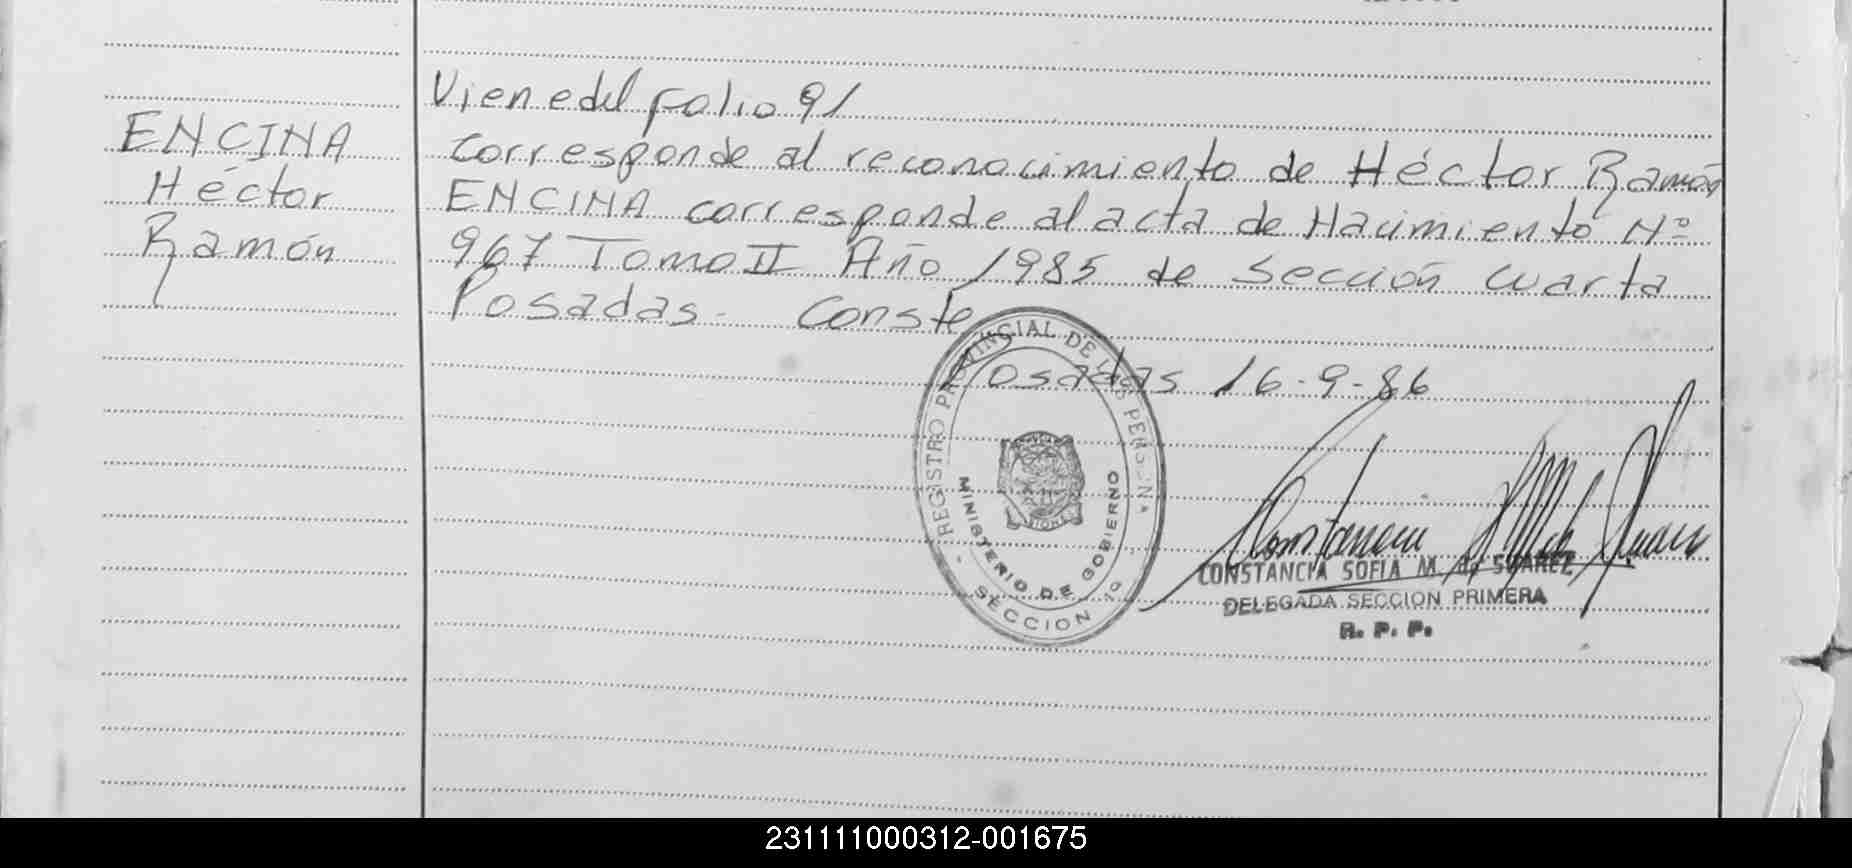 Viene del folio 91
ENCINA
Héctor
Ramón
Corresponde al reconocimiento de Héctor Ramón
ENCINA corresponde al acta de Nacimiento Nº
967 Tomo II Año 1985 de Sección Cuarta
Posadas - Conste
Posadas 16-9-86
- REGISTRO PROVINCIAL DE LAS PERSON
MINISTERIO DE GOBIERNO
SECCION 1º
CONSTANCIA SOFIA M. de SUAREZ
DELEGADA SECCION PRIMERA
R. P. P.
231111000312-001675